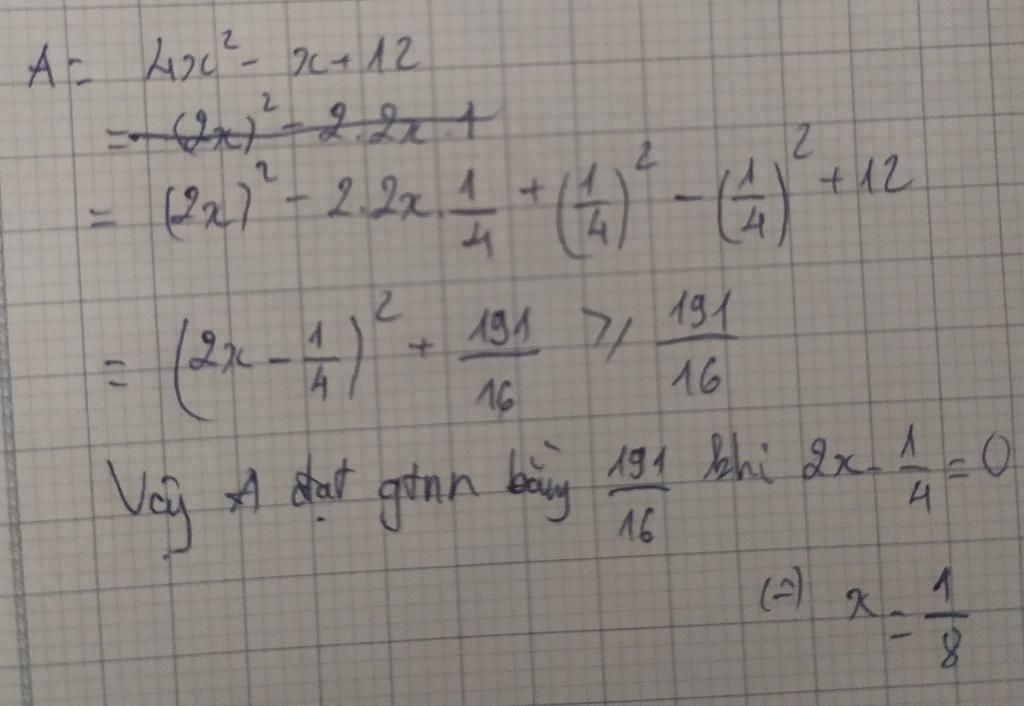 A = 4x² - x + 12
= (2x)² - 2.2x.1
= (2x)² - 2.2x.1/4 + (1/4)² - (1/4)² + 12
= (2x - 1/4)² + 191/16 ⩾ 191/16
Vậy A đạt gtnn bằng 191/16 khi 2x - 1/4 = 0
(=) x = 1/8